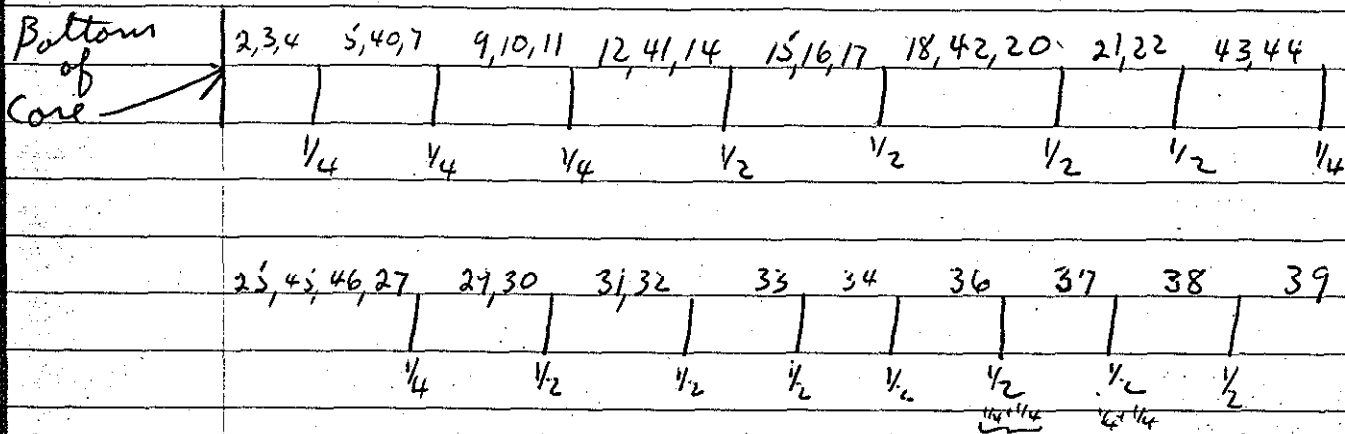 Bottom of Core
2,3,4 5,40,7 9,10,11 12,41,14 15,16,17 18,42,20 21,22 43,44
1/4 1/4 1/4 1/2 1/2 1/2 1/2 1/4
25,45,46,27 29,30 31,32 33 34 36 37 38 39
1/4 1/2 1/2 1/2 1/2 1/2 1/2 1/2
1/4+1/4 1/4+1/4